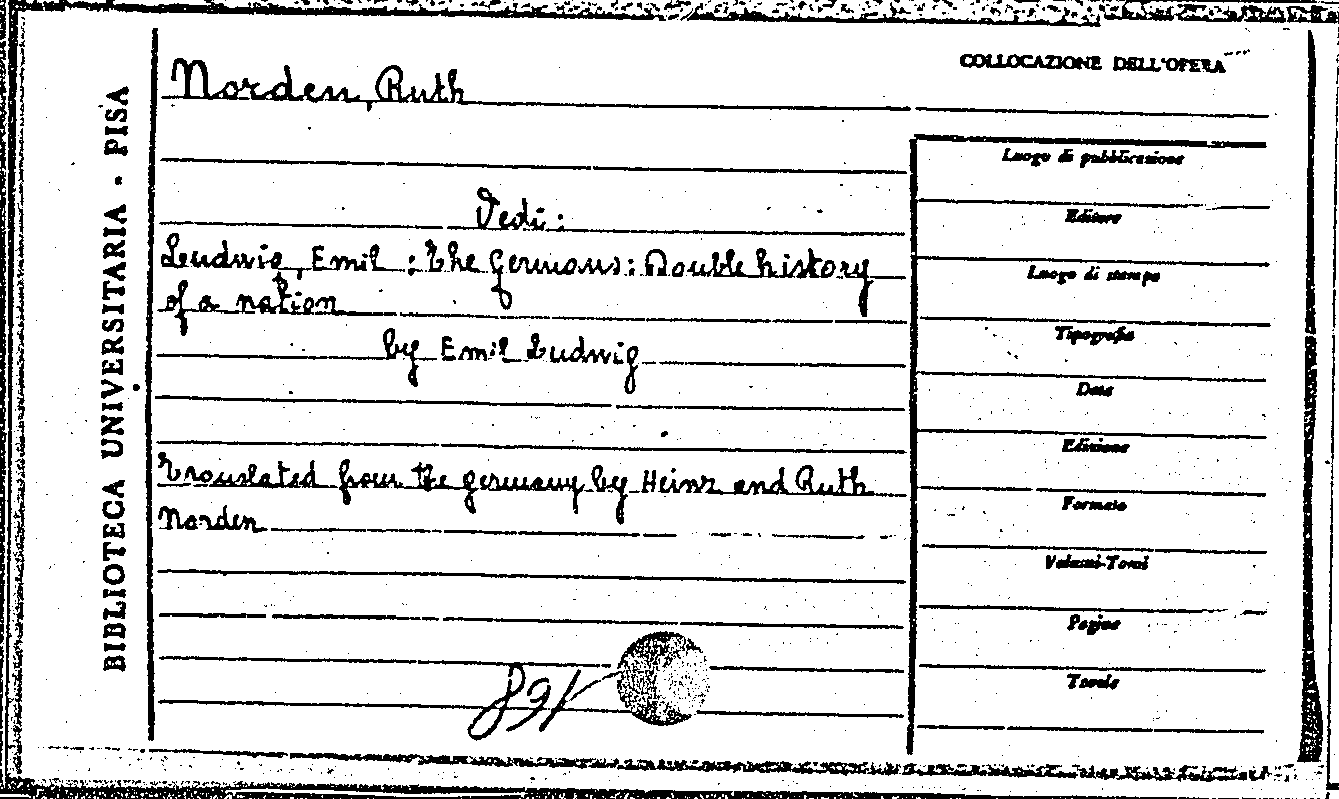 BIBLIOTECA UNIVERSITARIA - PISA
COLLOCAZIONE DELL'OPERA
Norden, Ruth
Vedi:
Ludwig, Emil : The Germans: Double history
of a nation
by Emil Ludwig
Translated from the germany by Heinz and Ruth
Norden
Luogo di pubblicazione
Editore
Luogo di stampa
Tipografia
Data
Edizione
Formato
Volumi-Tomi
Pagine
Tavole